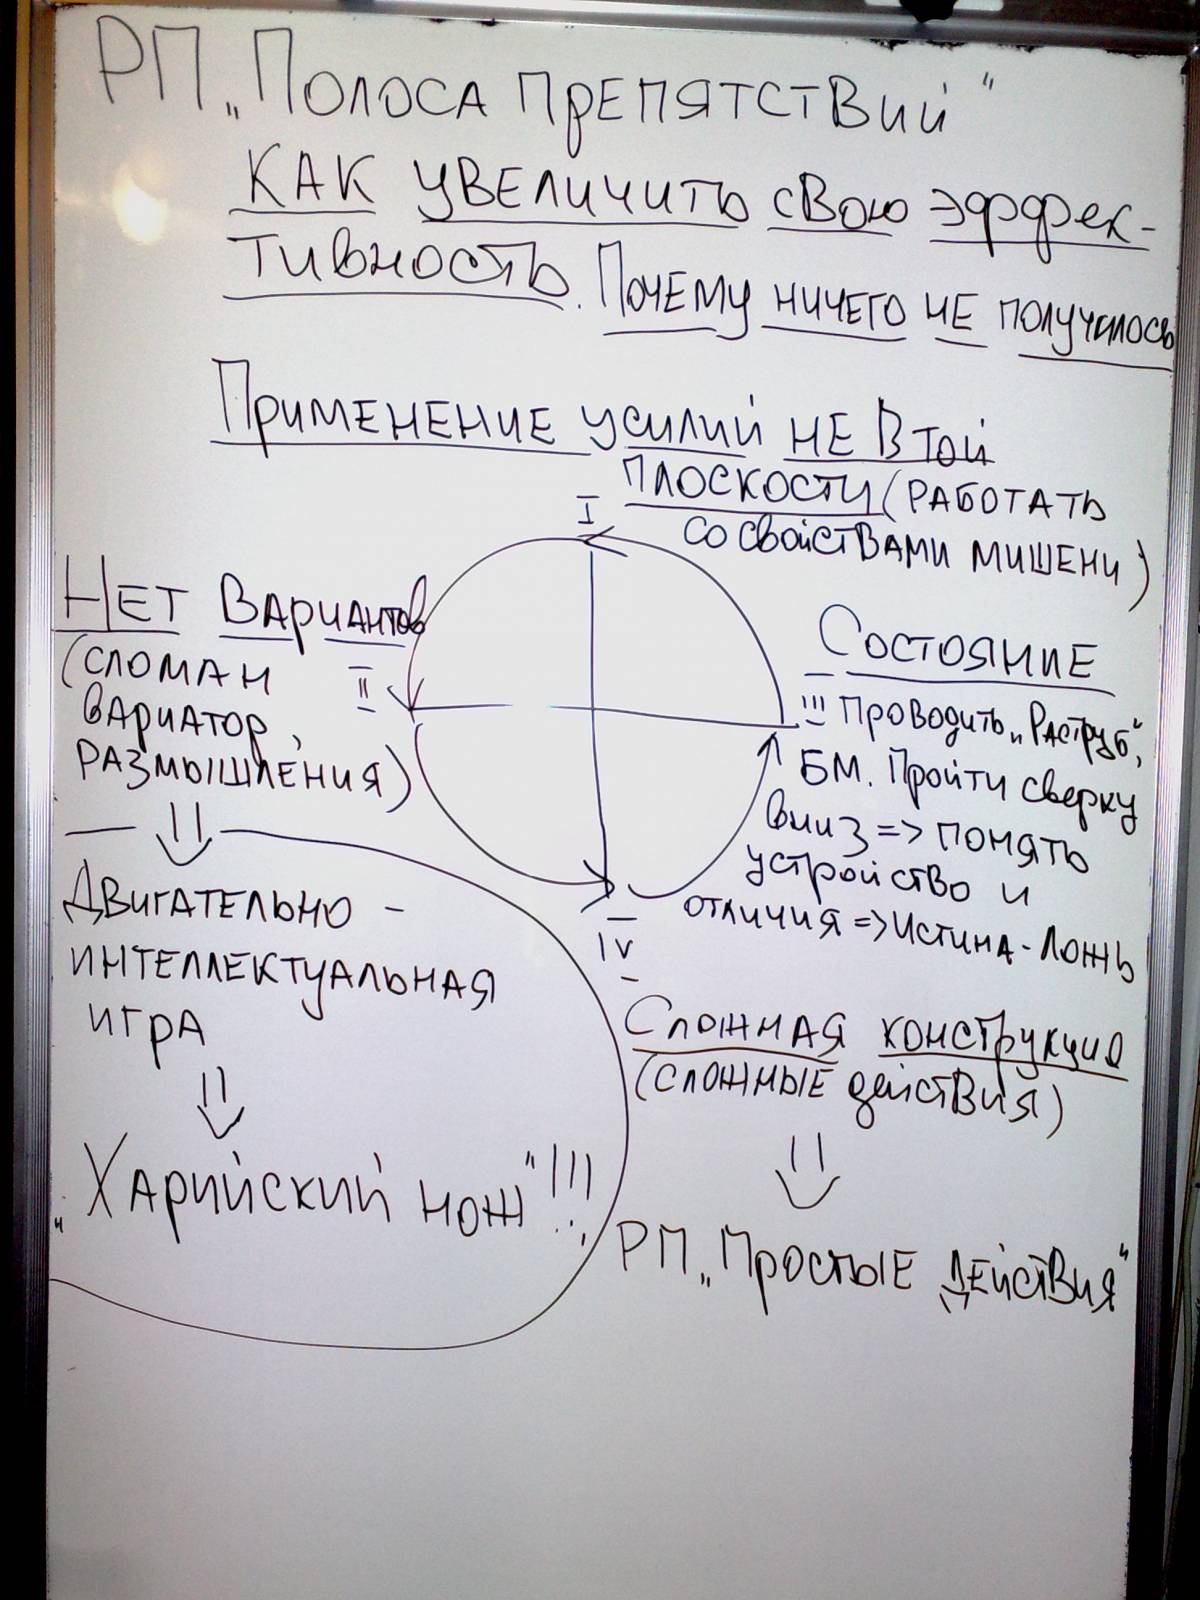 РП „Полоса препятствий"
Как увеличить свою эффек-
тивность. Почему ничего не получилось
Применение усилий не в той
плоскости (работать
со свойствами мишени)
I
Нет вариантов
(сломан
вариатор,
размышления)
II
Двигательно -
интеллектуальная
игра
„Харийский нож"!!!
Состояние
III Проводить „Раструб",
БМ. Пройти сверху
вниз => понять
устройство и
отличия => Истина - Ложь
IV
Сложная конструкция
(сложные действия)
РП „Простые действия"